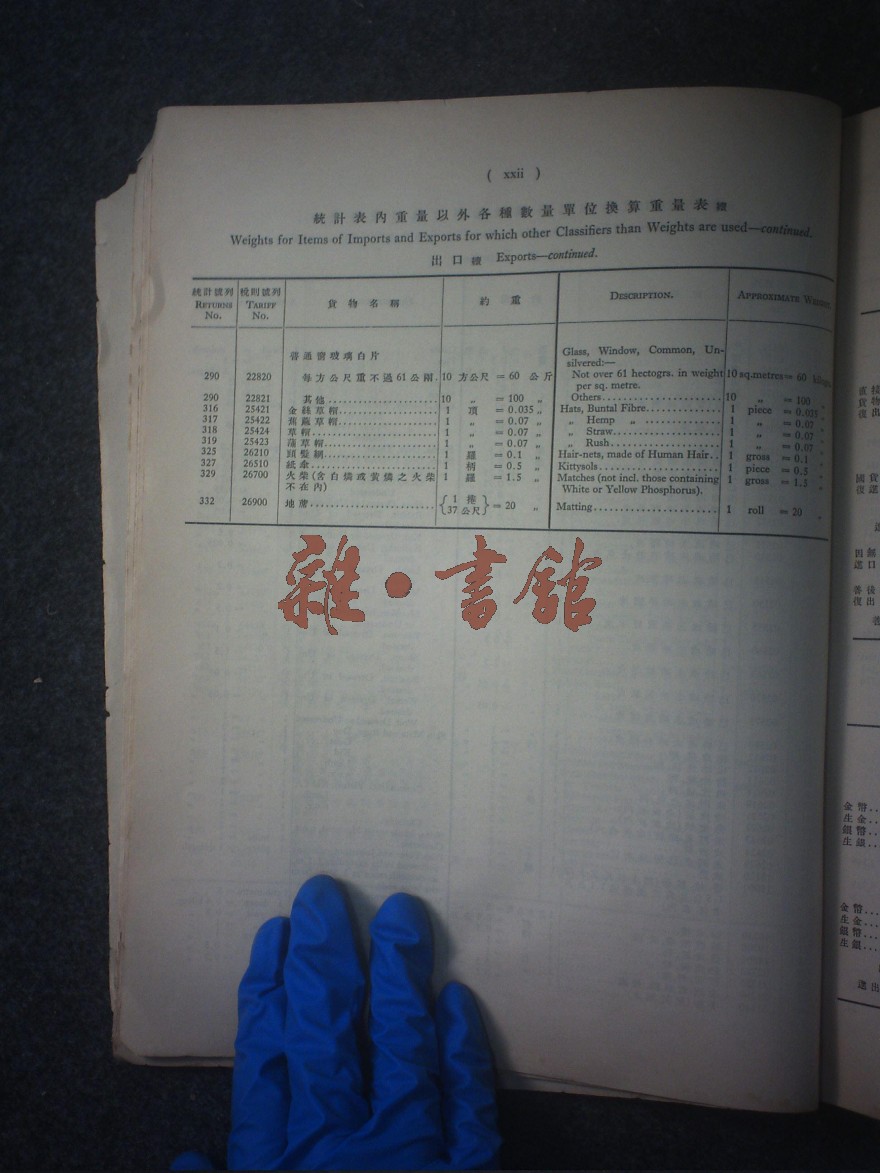 ( xxii )
統計表內重量以外各種數量單位換算重量表 續
Weights for Items of Imports and Exports for which other Classifiers than Weights are used—continued.
出口續 Exports—continued.
統計號列 稅則號列 貨物名稱 約重 DESCRIPTION. APPROXIMATE WEIGHT.
RETURNS TARIFF
No. No.
普通窗玻璃白片 Glass, Window, Common, Un-
silvered:—
290 22820 每方公尺重不過61公兩. 10 方公尺 = 60 公斤 Not over 61 hectogrs. in weight 10 sq.metres = 60
per sq. metre.
290 22821 其他 10 „ = 100 „ Others 10 „ = 100 „
316 25421 金絲草帽 1 頂 = 0.035 „ Hats, Buntal Fibre 1 piece = 0.035 „
317 25422 蕉麻草帽 1 „ = 0.07 „ „ Hemp „ 1 „ = 0.07 „
318 25424 草帽 1 „ = 0.07 „ „ Straw 1 „ = 0.07 „
319 25423 蒲草帽 1 „ = 0.07 „ „ Rush 1 „ = 0.07 „
325 26210 頭髮網 1 羅 = 0.1 „ Hair-nets, made of Human Hair 1 gross = 0.1 „
327 26510 紙傘 1 柄 = 0.5 „ Kittysols 1 piece = 0.5 „
329 26700 火柴(含白燐或黃燐之火柴 1 羅 = 1.5 „ Matches (not incl. those containing 1 gross = 1.5 „
不在內) White or Yellow Phosphorus).
332 26900 地席 { 1 捲 37 公尺 } = 20 „ Matting 1 roll = 20 „
雜・書館
金幣
生金
銀幣
生銀
金幣
生金
銀幣
生銀